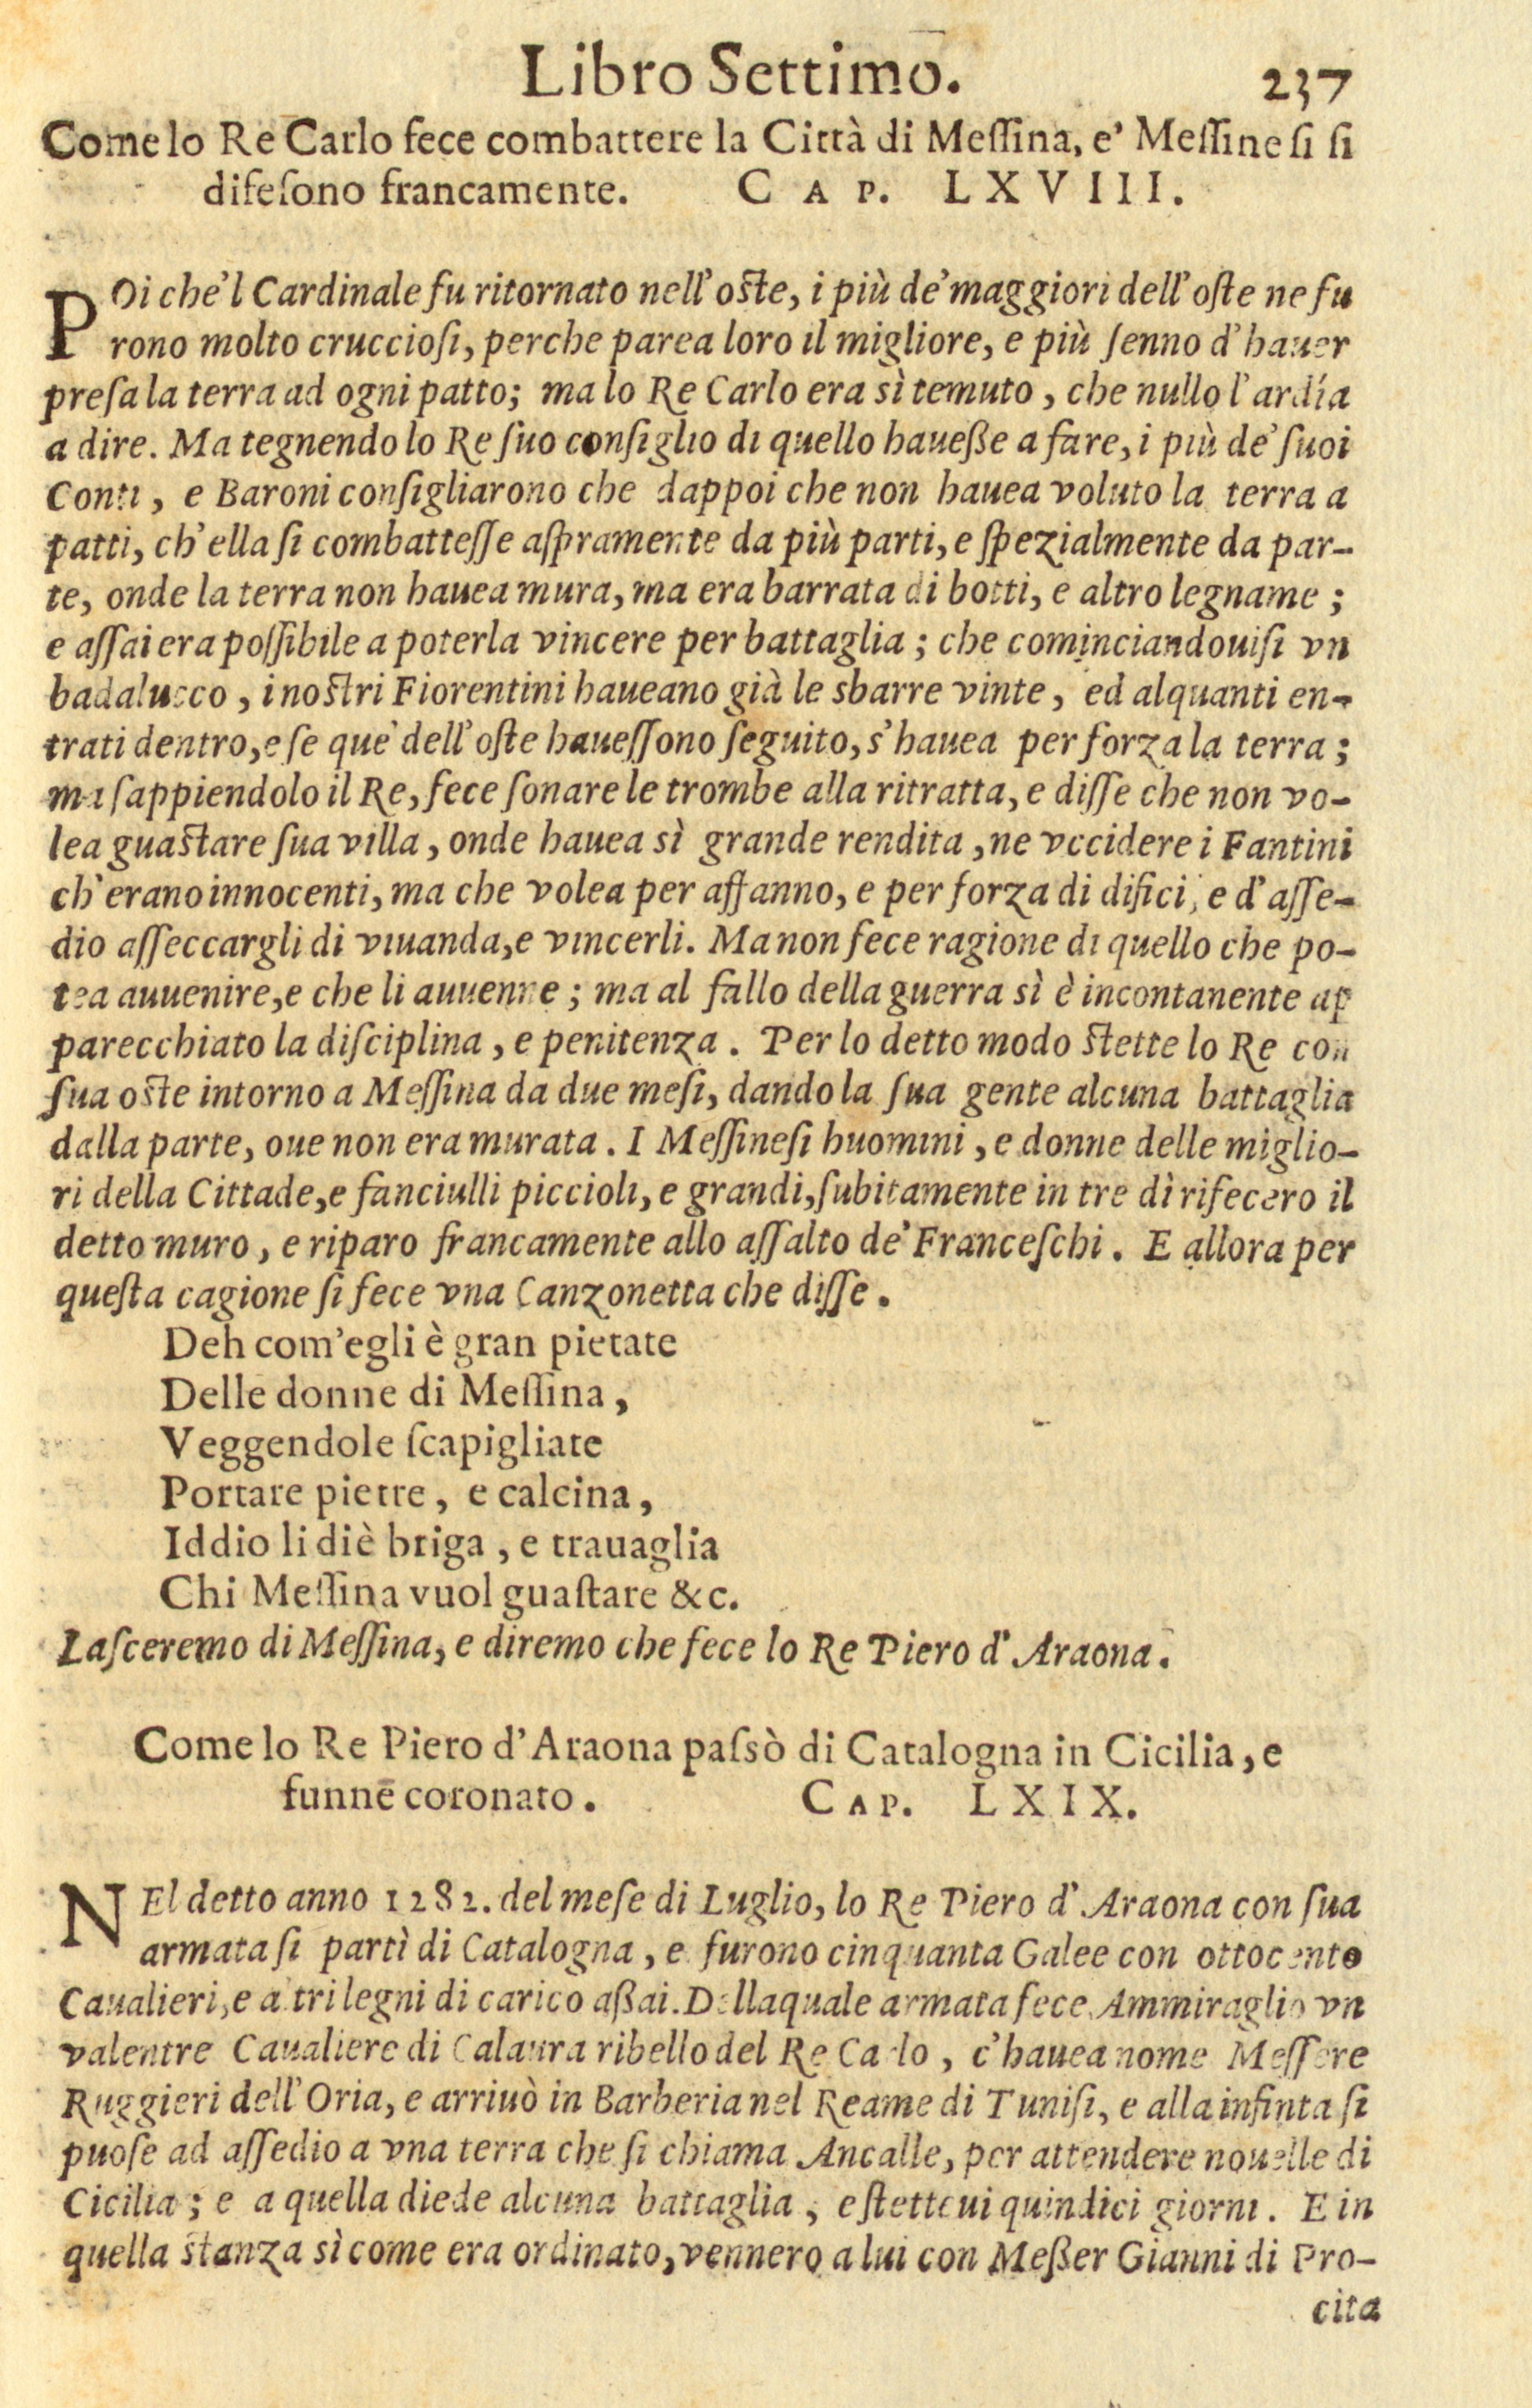 Libro Settimo. 237
Come lo Re Carlo fece combattere la Città di Meſſina, e' Meſſineſi ſi
difeſono francamente. CAP. LXVIII.
POi che'l Cardinale fu ritornato nell'oſte, i più de'maggiori dell'oſte ne fu
rono molto crucciosi, perche parea loro il migliore, e più ſenno d'hauer
preſa la terra ad ogni patto; ma lo Re Carlo era sì temuto, che nullo l'ardía
a dire. Ma tegnendo lo Re ſuo conſiglio di quello haueße a fare, i più de'ſuoi
Conti, e Baroni conſigliarono che dappoi che non hauea voluto la terra a
patti, ch'ella ſi combatteſſe aſpramente da più parti, e ſpezialmente da par-
te, onde la terra non hauea mura, ma era barrata di botti, e altro legname;
e aſſai era poſſibile a poterla vincere per battaglia; che cominciandouiſi vn
badalucco, i noſtri Fiorentini haueano già le sbarre vinte, ed alquanti en-
trati dentro, e ſe que' dell'oſte haueſſono ſeguito, s'hauea per forza la terra;
ma ſappiendolo il Re, fece ſonare le trombe alla ritratta, e diſſe che non vo-
lea guaſtare ſua villa, onde hauea sì grande rendita, ne vccidere i Fantini
ch'erano innocenti, ma che volea per affanno, e per forza di difici, e d'aſſe-
dio aſſeccargli di viuanda, e vincerli. Ma non fece ragione di quello che po-
tea auuenire, e che li auuenne; ma al fallo della guerra sì è incontanente ap
parecchiato la diſciplina, e penitenza. Per lo detto modo ſtette lo Re con
ſua oſte intorno a Meſſina da due meſi, dando la ſua gente alcuna battaglia
dalla parte, oue non era murata. I Meſſineſi huomini, e donne delle miglio-
ri della Cittade, e fanciulli piccioli, e grandi, ſubitamente in tre dì rifecero il
detto muro, e riparo francamente allo aſſalto de'Franceſchi. E allora per
queſta cagione ſi fece vna Canzonetta che diſſe.
Deh com'egli è gran pietate
Delle donne di Meſſina,
Veggendole ſcapigliate
Portare pietre, e calcina,
Iddio li diè briga, e trauaglia
Chi Meſſina vuol guaſtare &c.
Laſceremo di Meſſina, e diremo che fece lo Re Piero d'Araona.
Come lo Re Piero d'Araona paſsò di Catalogna in Cicilia, e
funnē coronato. CAP. LXIX.
NEl detto anno 1282. del meſe di Luglio, lo Re Piero d'Araona con ſua
armata ſi partì di Catalogna, e furono cinquanta Galee con ottocento
Caualieri, e altri legni di carico aßai. Della quale armata fece Ammiraglio vn
valentre Caualiere di Calaura ribello del Re Carlo, c'hauea nome Meſſere
Ruggieri dell'Oria, e arriuò in Barberia nel Reame di Tuniſi, e alla infinta ſi
puoſe ad aſſedio a vna terra che ſi chiama Ancalle, per attendere nouelle di
Cicilia; e a quella diede alcuna battaglia, e ſtetteui quindici giorni. E in
quella ſtanza sì come era ordinato, vennero a lui con Meßer Gianni di Pro-
cita